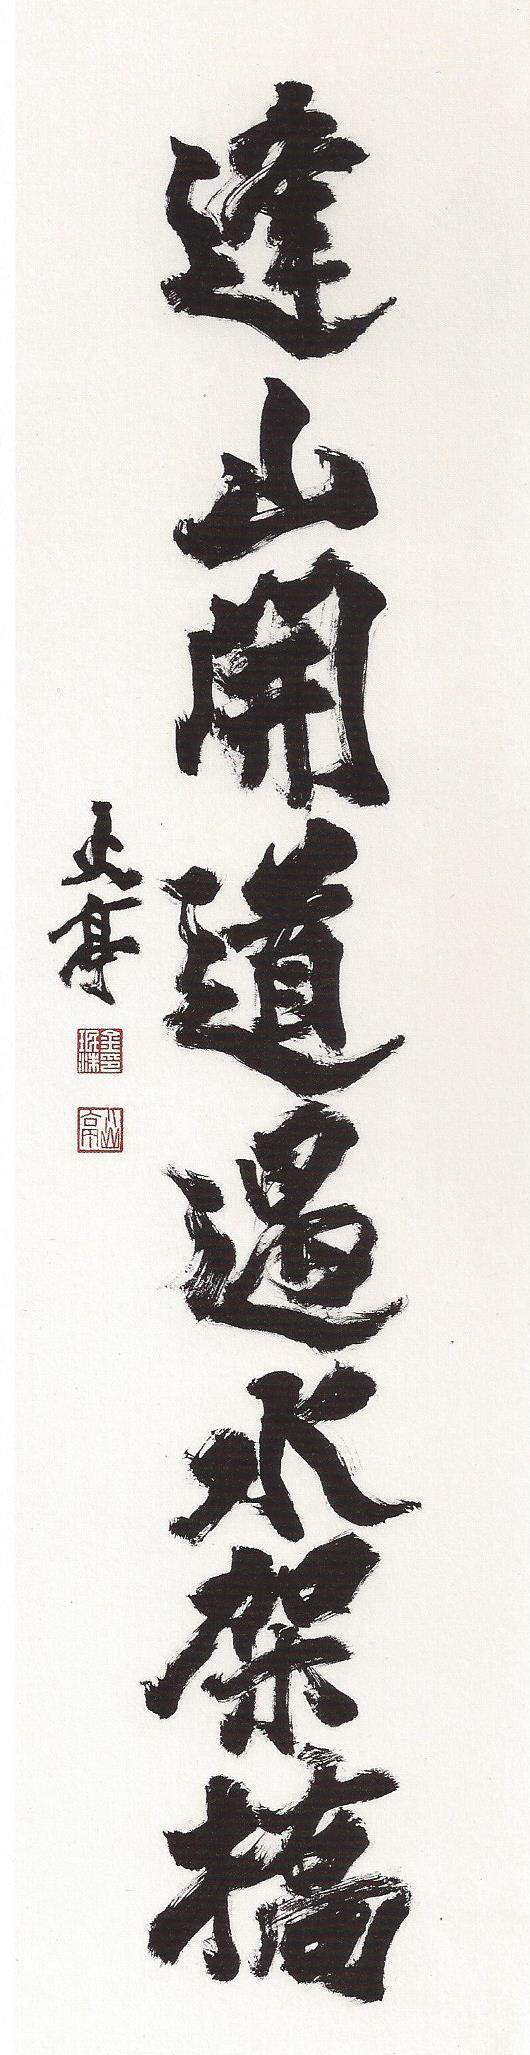 逢山開道遇水架橋
亭